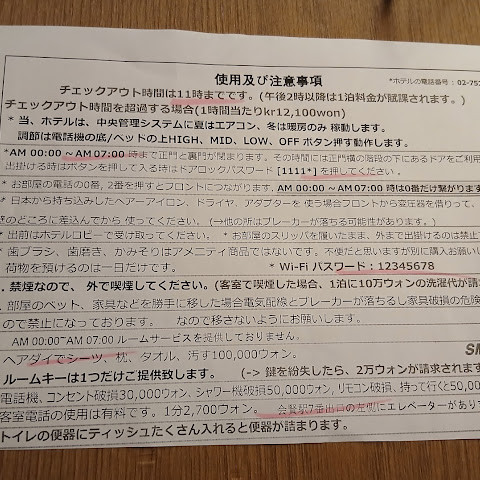 使用及び注意事項
*ホテルの電話番号 : 02-75
チェックアウト時間は11時までです。(午後2時以降は1泊料金が賦課されます。)
チェックアウト時間を超過する場合(1時間当たりkr12,100won)
* 当、ホテルは、中央管理システムに夏はエアコン、冬は暖房のみ 稼動します。
調節は電話機の底/ベッドの上HIGH、MID、LOW、OFF ボタン押す動作します。
*AM 00:00 ~AM 07:00 時まで正門と裏門が閉まります。その時間には正門横の階段の下にあるドアをご利用
出掛ける時はボタンを押して入る時はドアロックパスワード [1111*] を押してください。
* お部屋の電話の0番、2番を押すとフロントにつながります。AM 00:00 ~AM 07:00 時は0番だけ繋がります
* 日本から持ち込みしたヘアーアイロン、ドライヤ、アダプターを 使う場合フロントから変圧器を借りって、
きのどころに差込んでから 使ってください。(→他の所はブレーカーが落ちる可能性があります。)
* 出前はホテルコピーで受け取ってください。 * お部屋のスリッパを履いたまま、外まで出掛けるのは禁止で
* 歯ブラシ、歯磨き、かみそりはアメニティ商品ではないです。不便だと思いますが別に購入お願いし
荷物を預けるのは一日だけです。 * Wi-Fi パスワード : 12345678
. 禁煙なので、 外で喫煙してください。(客室で喫煙した場合、1泊に10万ウォンの洗濯代が請
. 部屋のベット、家具などを勝手に移した場合電気配線とブレーカーが落ちるし家具破損の危険
ので禁止になっております。 なので移さないようにお願いします。
AM 00:00~AM 07:00 ルームサービスを提供しておりません。
ヘアダイでシーツ、枕、タオル、汚す100,000ウォン。
SM
ルームキーは1つだけご提供致します。 (-> 鍵を紛失したら、2万ウォンが請求されます
電話機、コンセント破損30,000ウォン、シャワー機破損50,000ウォン、リモコン破損、持って行くと50,00
客室電話の使用は有料です。1分2,700ウォン。 会賢駅7番出口の左側にエレベーターがありま
トイレの便器にティッシュたくさん入れると便器が詰まります。